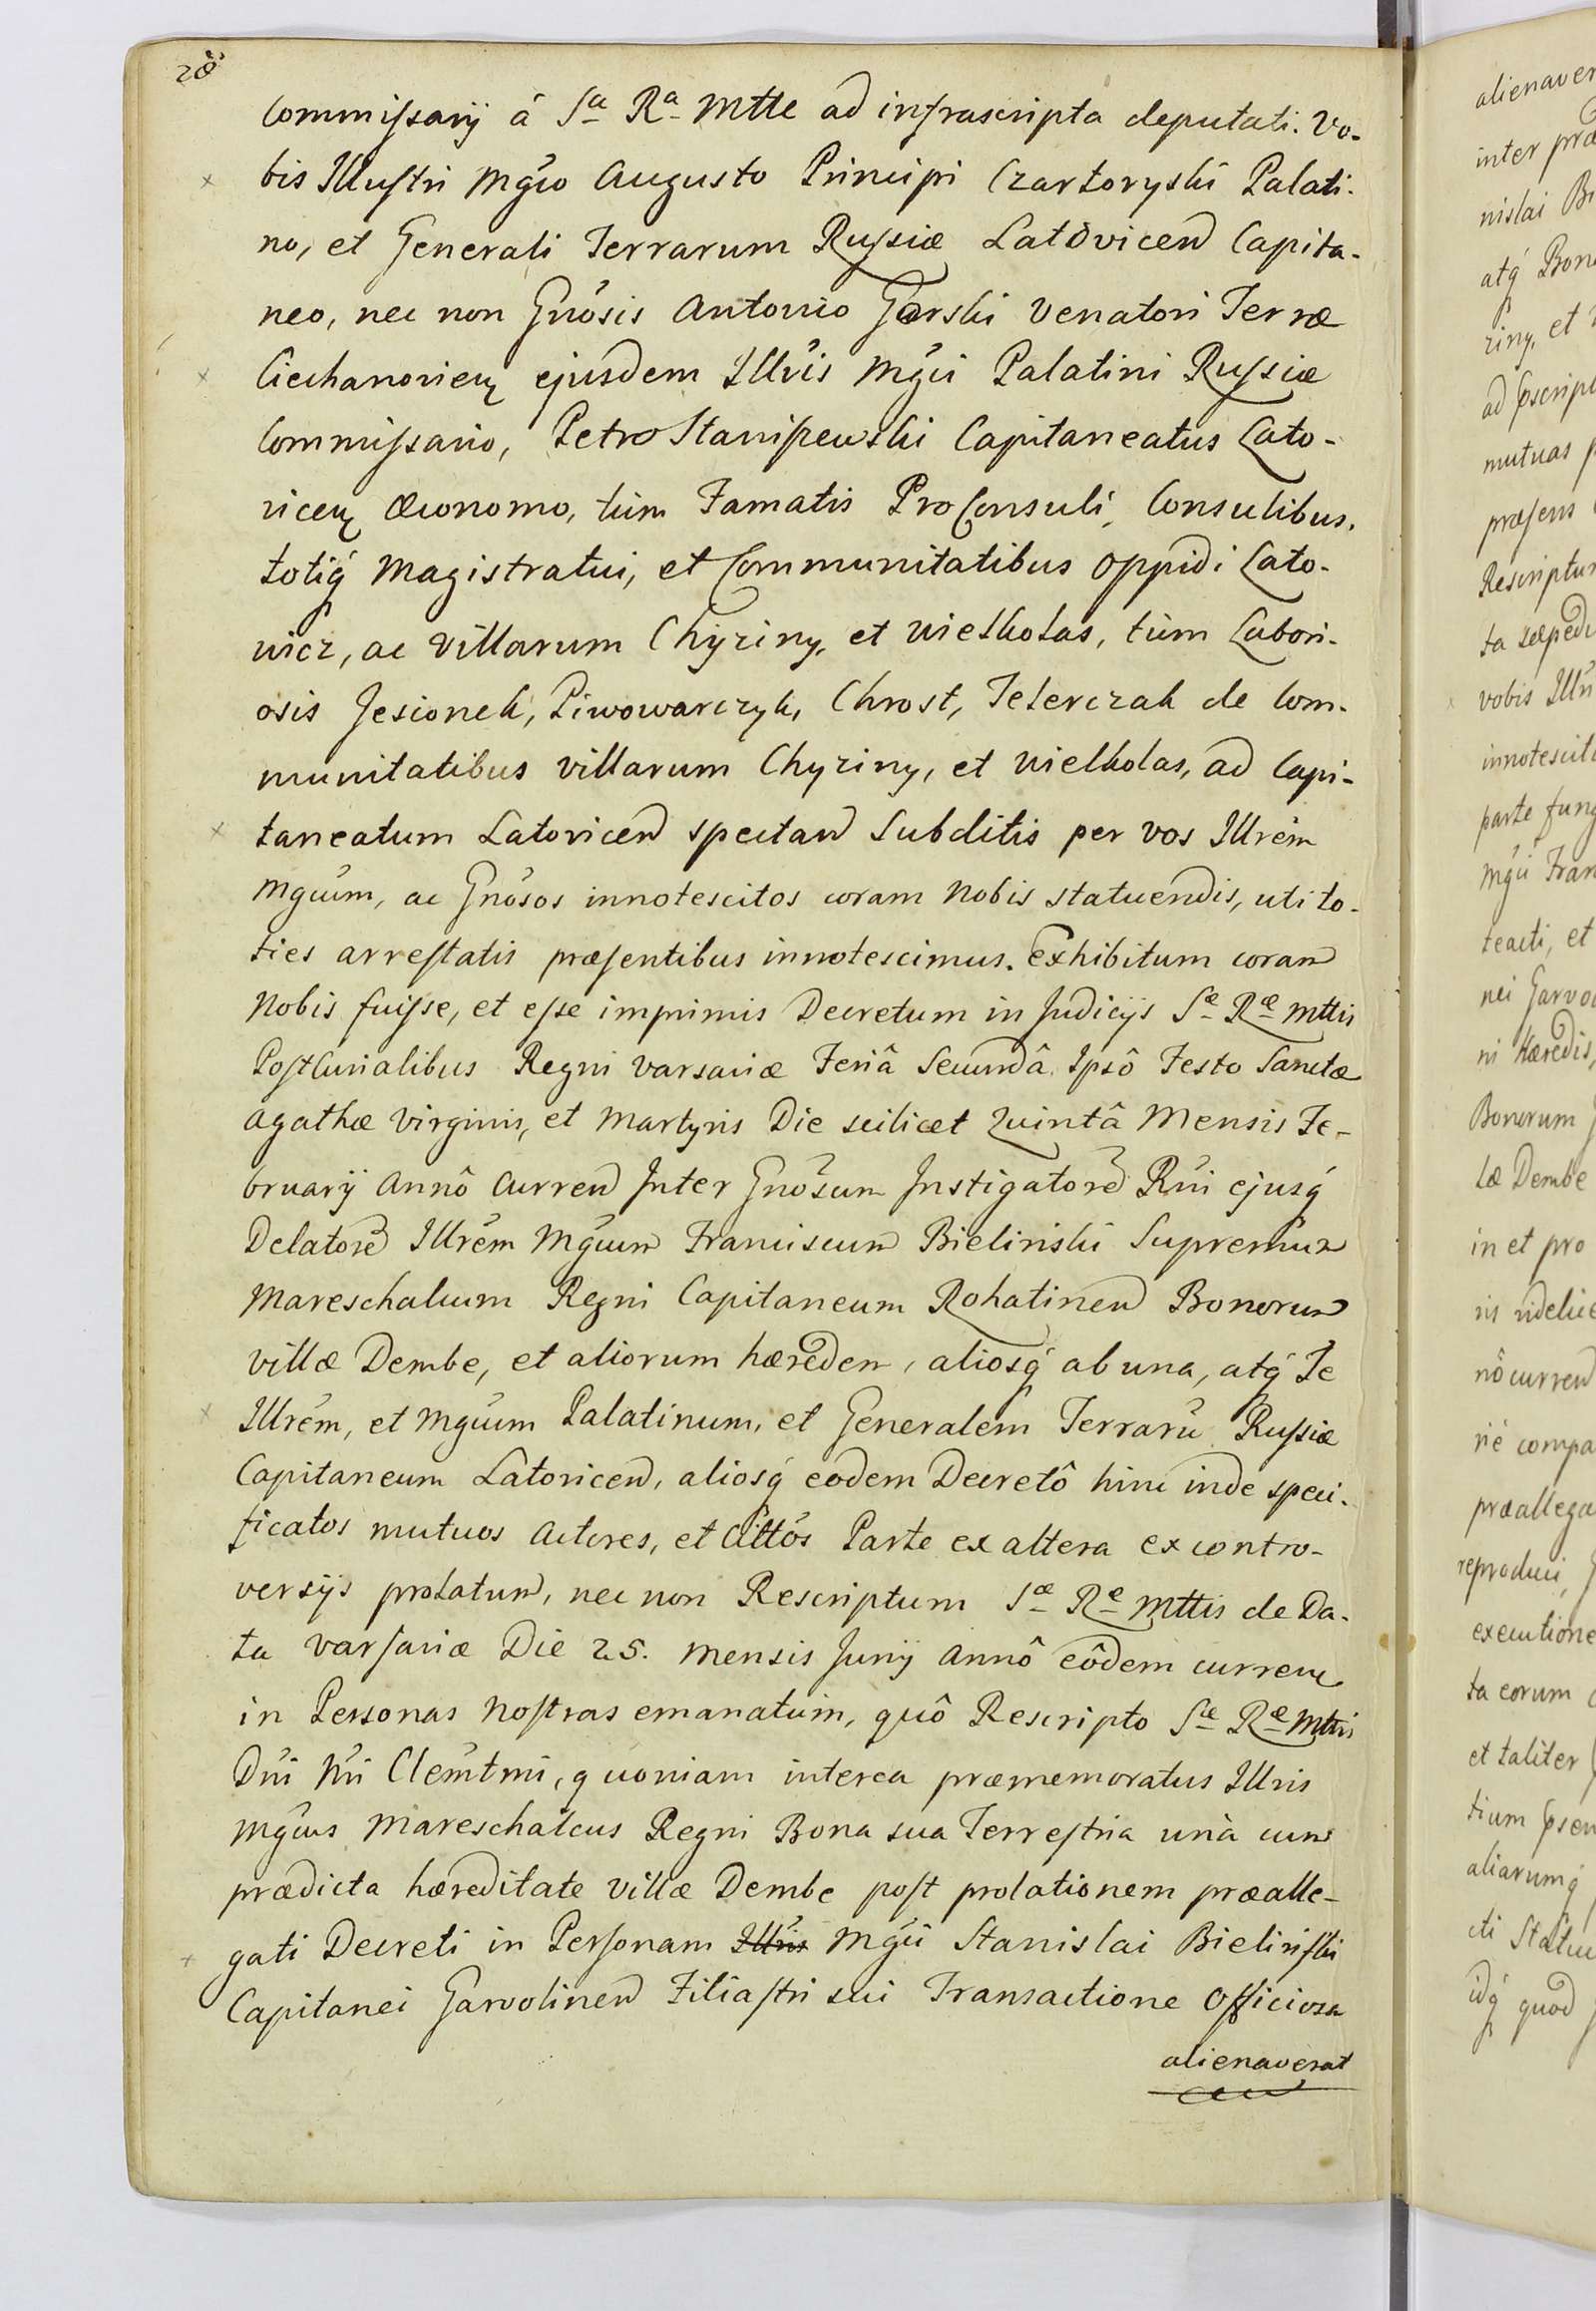 28
Commissarij â Sa Ra Mtte ad infrascripta deputati. Vo-
bis Illustri Mgco Augusto Principi Czartoryski Palati-
no, et Generali Terrarum Russiæ Latovicen Capita-
neo, nec non Gnosis Antonio Gorski Venatori Terræ
Ciechanovien ejusdem Illris Mgci Palatini Russiæ
Commissario, Petro Staniszewski Capitaneatus Lato-
vicen Œconomo, tùm Famatis ProConsuli, Consulibus,
totiq́ Magistratui, et Communitatibus oppidi Lato-
wicz, ac Villarum Chyziny, et Wielkolas, tùm Labori-
osis Jesionek, Piwowarczyk, Chrost, Teterczak de Com-
munitatibus villarum Chyziny, et Wielkolas, ad Capi-
taneatum Latovicen spectan Subditis per vos Illrem
Mgcum, ac Gnosos innotescitos coram Nobis statuendis, uti to-
ties arrestatis præsentibus innotescimus. Exhibitum coram
Nobis fuisse, et esse imprimis Decretum in Judicijs Sæ Ræ Mttis
PostCurialibus Regni Varsaviæ Feriâ Secundâ Ipsô Festo Sanctæ
Agathæ Virginis, et Martyris Die scilicet Quintâ Mensis Fe-
bruarij Annô Curren Inter Gnosum Instigatore Rni ejusq́
Delatore Illrem Mgcum Franciscum Bielinski Supremum
Mareschalcum Regni Capitaneum Rohatinen Bonorum
villæ Dembe, et aliorum hæredem, aliosq́ ab una, atq́ Te
Illrem, et Mgcum Palatinum, et Generalem Terraru Russiæ
Capitaneum Latovicen, aliosq́ eôdem Decretô hinc inde speci-
ficatos mutuos Actores, et Cittos Parte ex altera ex contro-
versijs prolatum, nec non Rescriptum Sæ Ræ Mttis de Da-
ta Varsaviæ Die 25. Mensis Junij Annô eôdem curren
in Personas Nostras emanatum, quô Rescripto Sæ Ræ Mttis
Dni Nri Clemtmi, quoniam interea præmemoratus Illris
Mgcus Mareschalcus Regni Bona sua Terrestria unà cum
prædicta hæreditate villæ Dembe post prolationem præalle-
gati Decreti in Personam Illris Mgci Stanislai Bielinski
Capitanei Garvolinen Filiastri sui Transactione Officiosa
alienaverat
alienaver
inter præ
nislai Bi
atq́ Bon
ziny, et
mutuas
præsens
Rescriptum
ta sæpedi
vobis Illri
innotescit
parte fung
Mgci Fran
teacti, et
nei Garvol
ni Hæredis,
Bonorum
læ Dembe
in et pro
ris videlic
nô curren
rie compa
præallega
reproduci,
executione
ta eorum
et taliter
tium
aliarumq́
cti Statu
idq́ quod